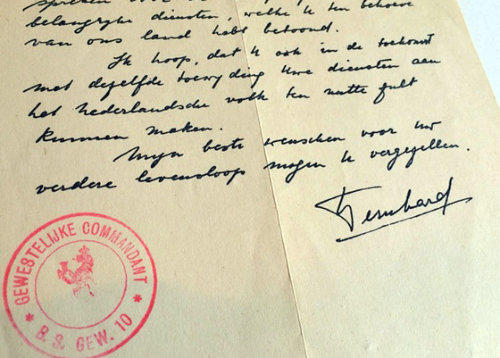 belangrijke diensten, welke U ten behoeve
van ons land hebt betoond.
Ik hoop, dat U ook in de toekomst
met dezelfde toewijding Uwe diensten aan
het Nederlandsche volk ten nutte zult
kunnen maken.
Mijn beste wenschen voor Uw
verdere levensloop mogen U vergezellen.
Bernhard
GEWESTELIJKE COMMANDANT
* B.S. GEW. 10 *